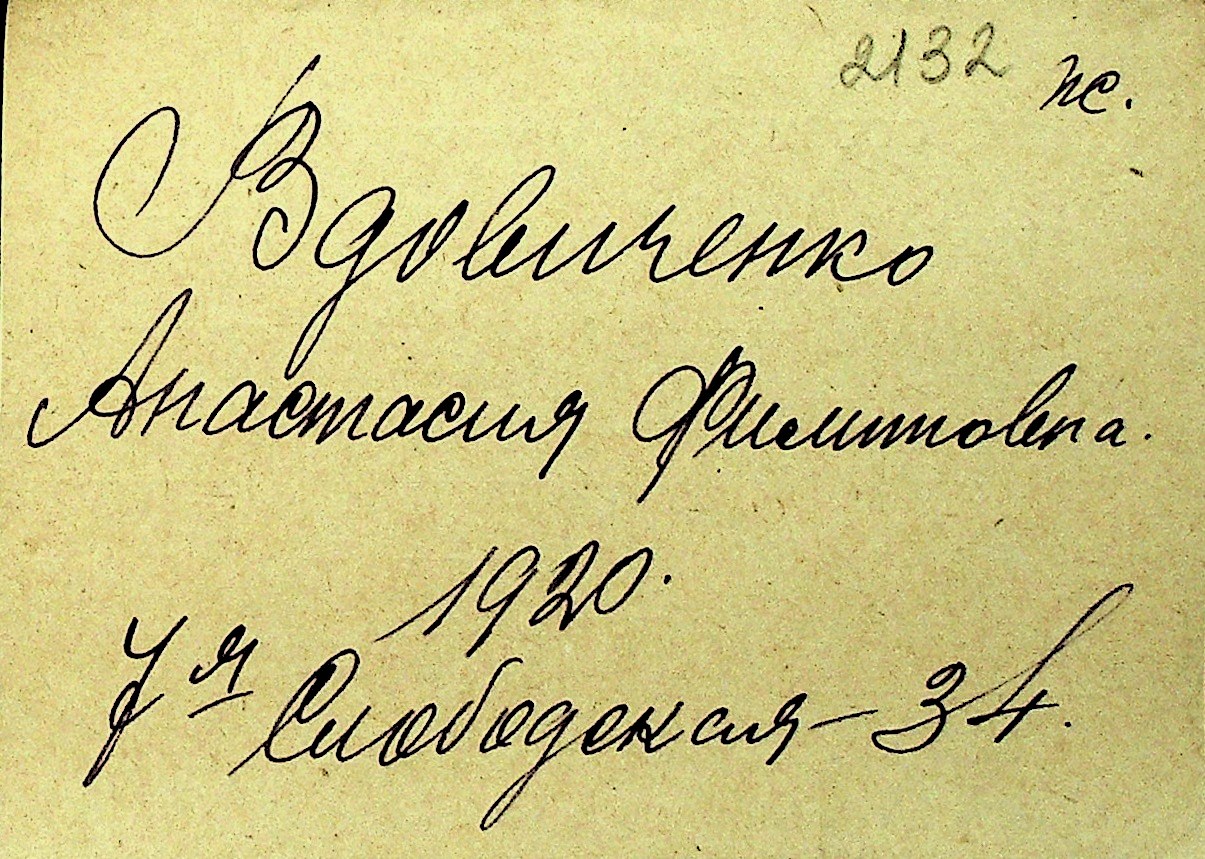 2132 пс.
Вдовиченко
Анастасия Филиповна.
1920.
7я Слободская – 34.